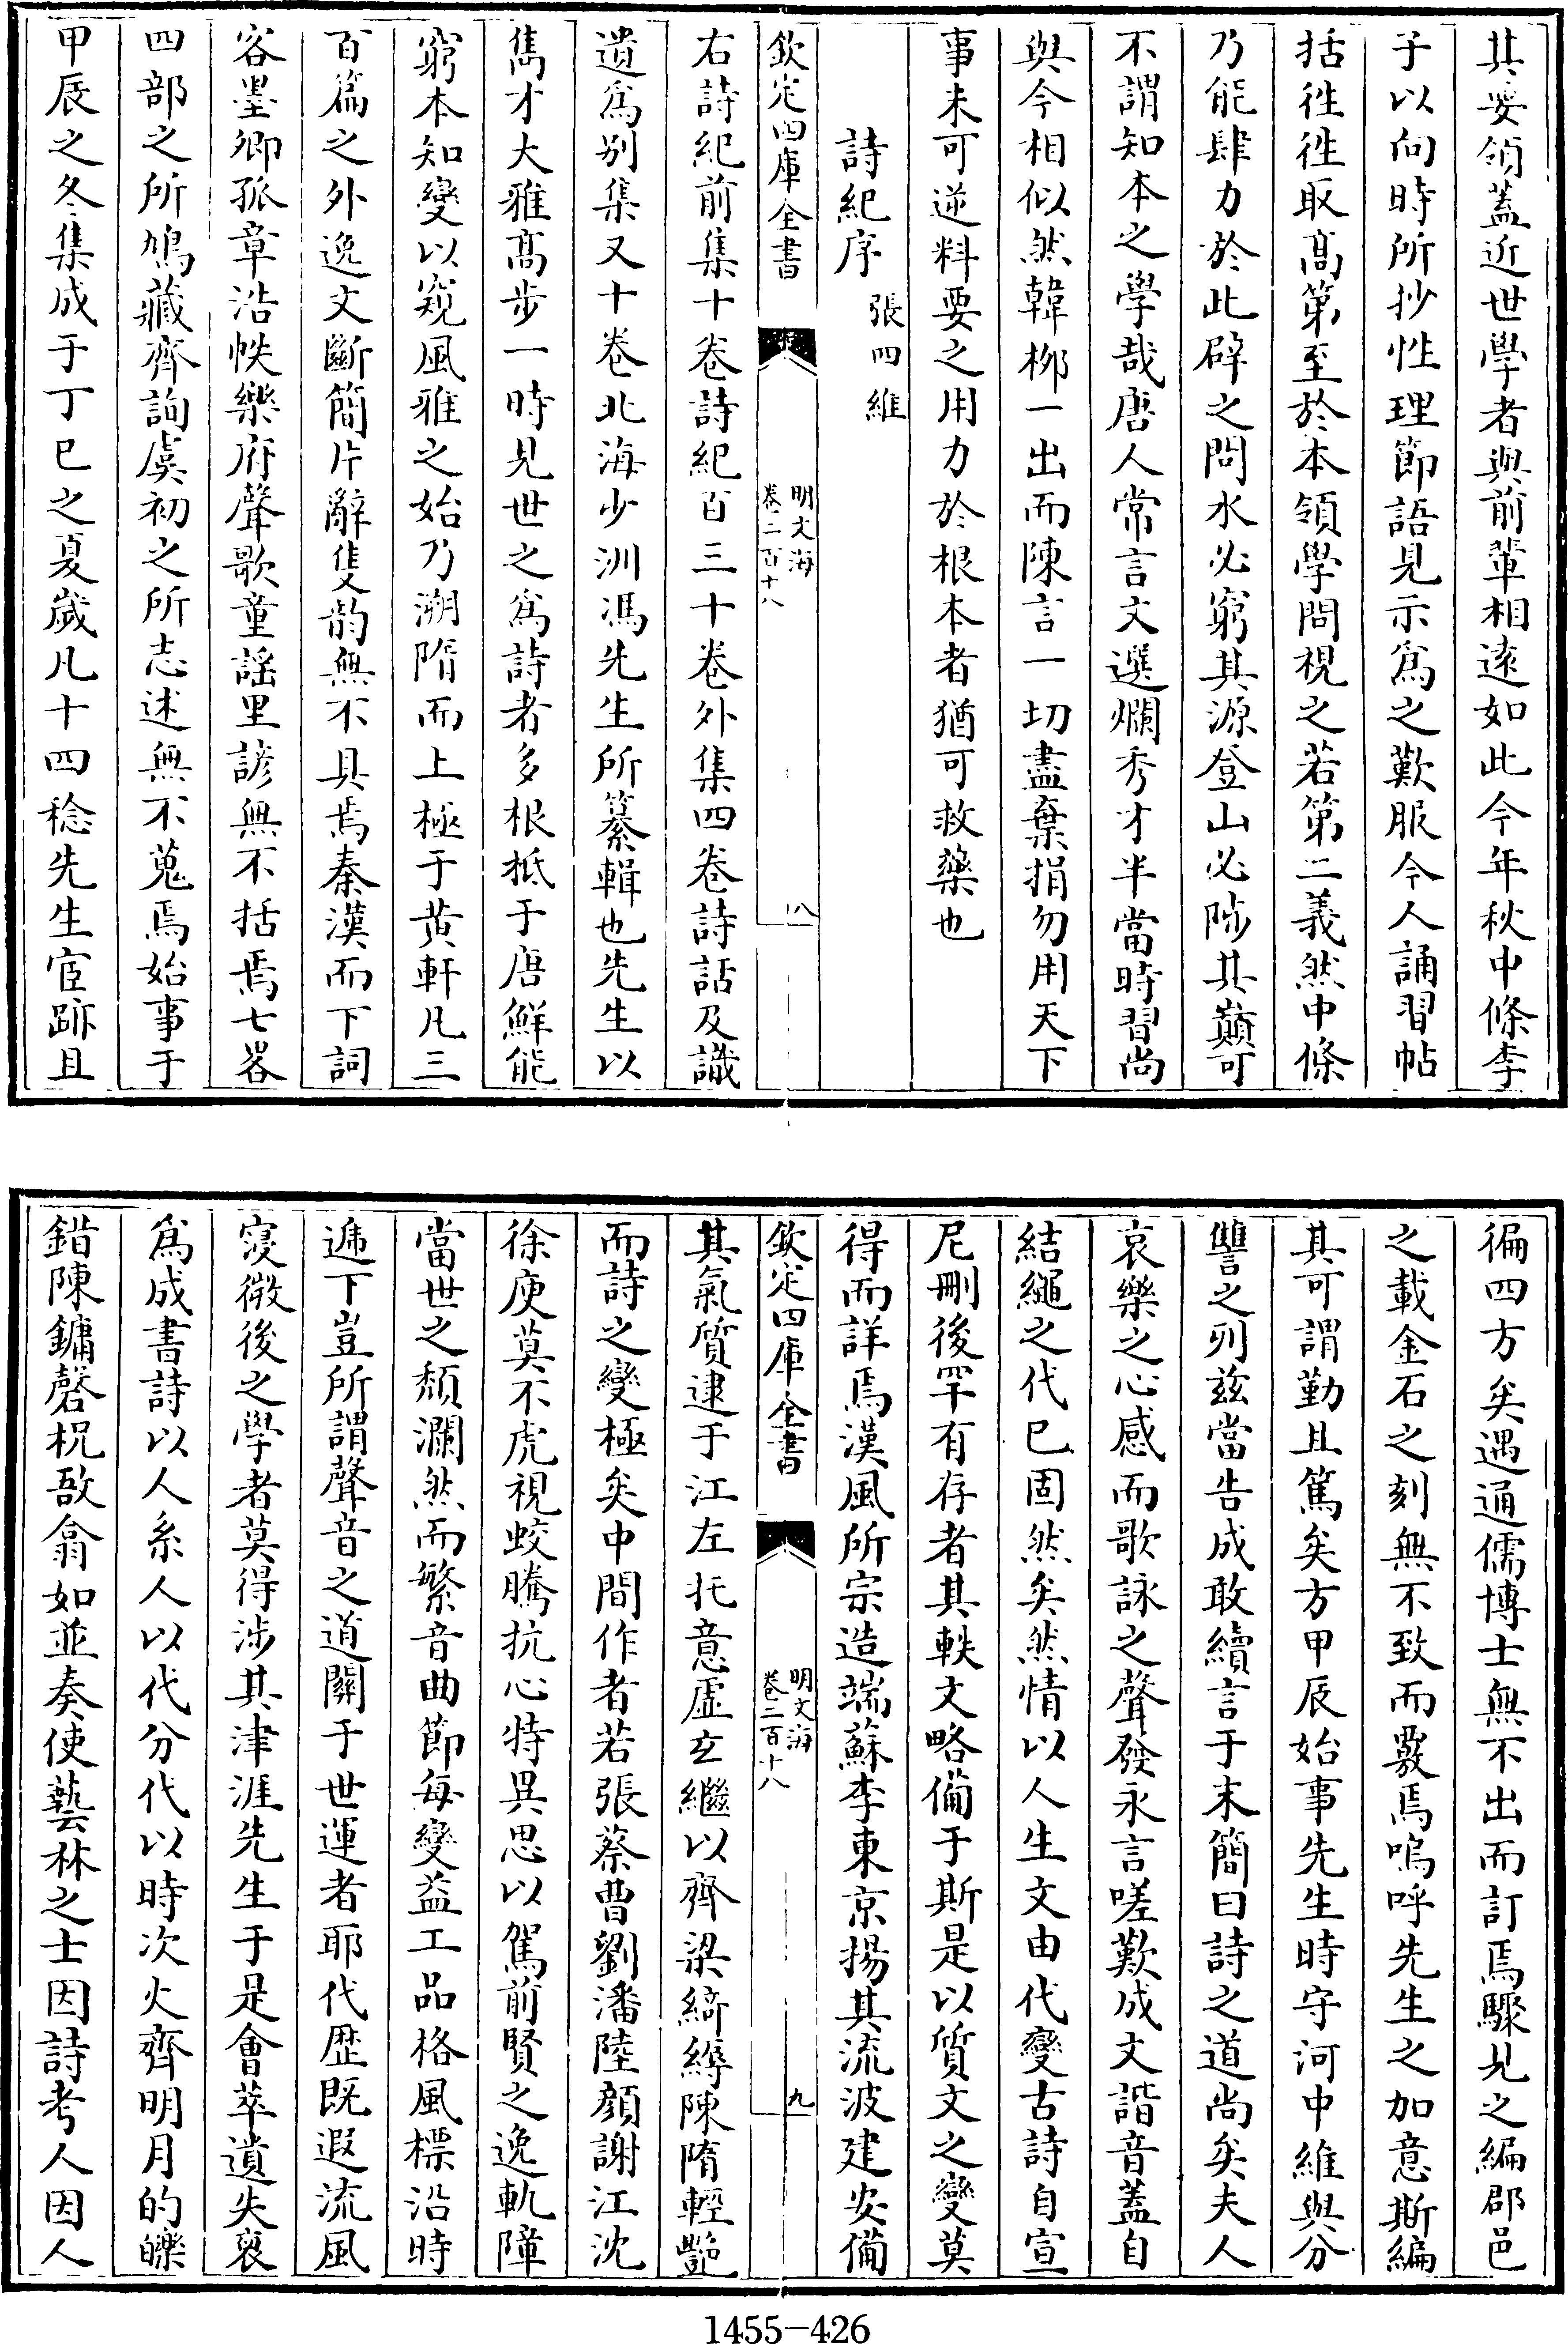 其要領蓋近世學者與前輩相遠如此今年秋中條李
子以向時所抄性理節語見示為之歎服今人誦習帖
括徃徃取髙第至於本領學問視之若第二義然中條
乃能肆力於此辟之問水必窮其源登山必陟其巔可
不謂知本之學哉唐人常言文選爛秀才半當時習尚
與今相似然韓柳一出而陳言一切盡棄捐勿用天下
事未可逆料要之用力於根本者猶可救藥也
詩紀序 張四維
欽定四庫全書 明文海 卷二百十八 八
右詩紀前集十卷詩紀百三十卷外集四卷詩話及識
遺為别集又十卷北海少洲馮先生所纂輯也先生以
雋才大雅髙步一時見世之為詩者多根抵于唐鮮能
窮本知變以窺風雅之始乃溯隋而上極于黄軒凡三
百篇之外逸文斷簡片辭隻韵無不具焉秦漢而下詞
客墨卿孤章浩帙樂府聲歌童謡里諺無不括焉七畧
四部之所鳩藏齊詢虞初之所志述無不蒐焉始事于
甲辰之冬集成于丁巳之夏歲凡十四稔先生宦跡且
徧四方矣遇通儒博士無不出而訂焉驟見之編郡邑
之載金石之刻無不致而覈焉嗚呼先生之加意斯編
其可謂勤且篤矣方甲辰始事先生時守河中維與分
讐之列兹當告成敢續言于末簡曰詩之道尚矣夫人
哀樂之心感而歌詠之聲發永言嗟歎成文諧音蓋自
結繩之代已固然矣然情以人生文由代變古詩自宣
尼刪後罕有存者其軼文略備于斯是以質文之變莫
得而詳焉漢風所宗造端蘇李東京揚其流波建安備
欽定四庫全書 明文海 卷二百十八 九
其氣質逮于江左托意虚玄繼以齊梁綺縟陳隋輕艷
而詩之變極矣中間作者若張蔡曹劉潘陸顔謝江沈
徐庾莫不虎視蛟騰抗心特異思以駕前賢之逸軌障
當世之頽瀾然而繁音曲節每變益工品格風標沿時
遞下豈所謂聲音之道關于世運者耶代歴既遐流風
寖微後之學者莫得涉其津涯先生于是會萃遺失裒
為成書詩以人系人以代分代以時次火齊明月的皪
錯陳鏞磬柷敔翕如並奏使藝林之士因詩考人因人
1455-426